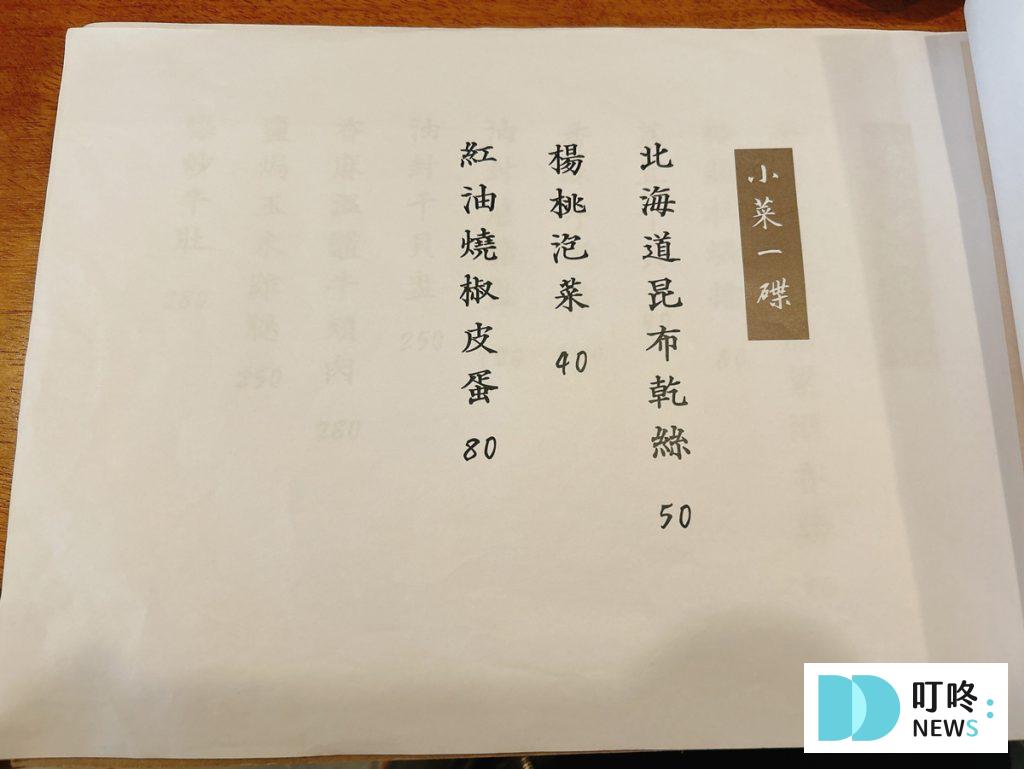 小菜一碟
北海道昆布乾絲 50
楊桃泡菜 40
紅油燒椒皮蛋 80
叮咚
NEWS